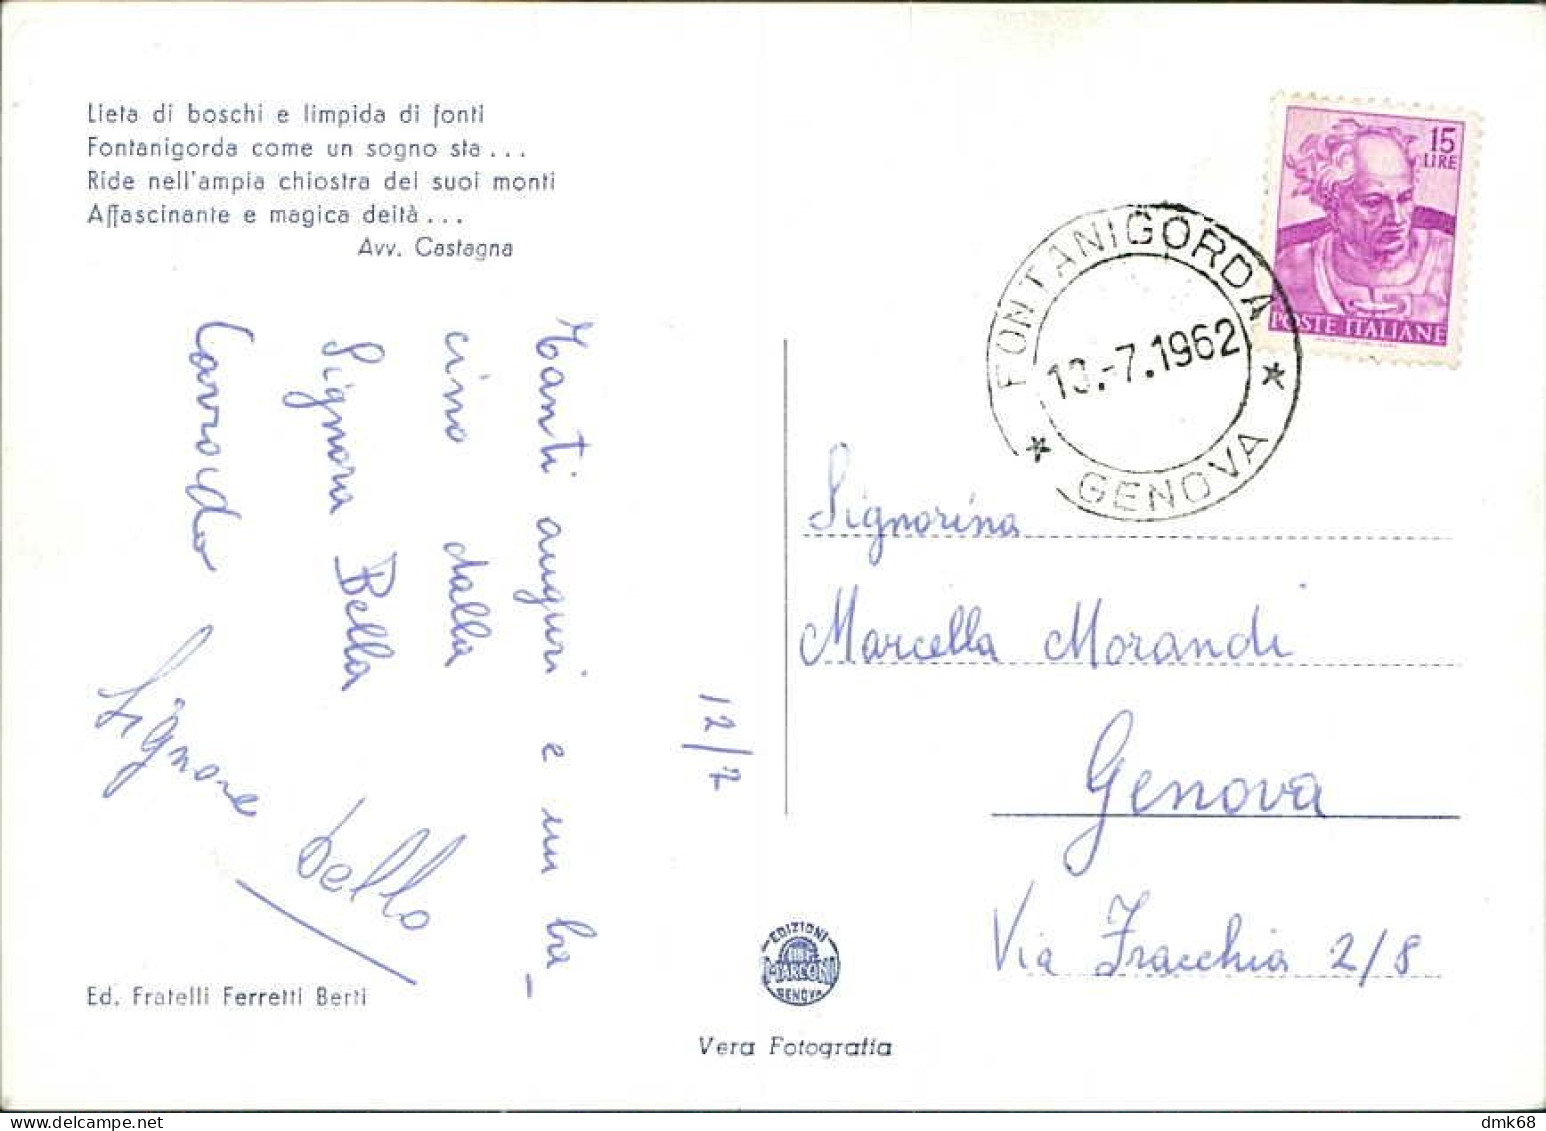 Lieta di boschi e limpida di fonti
Fontanigorda come un sogno sta...
Ride nell'ampia chiostra dei suoi monti
Affascinante e magica deità...
Avv. Castagna
12/7
Tanti auguri e un ba-
cino dalla
Signora Bella
Signore bello
Ed. Fratelli Ferretti Berti
EDIZIONI
MARCONI
GENOVA
Vera Fotografia
15
LIRE
POSTE ITALIANE
FONTANIGORDA
13.-7.1962
GENOVA
Signorina
Marcella Morandi
Genova
Via Fracchia 2/8
dmk68